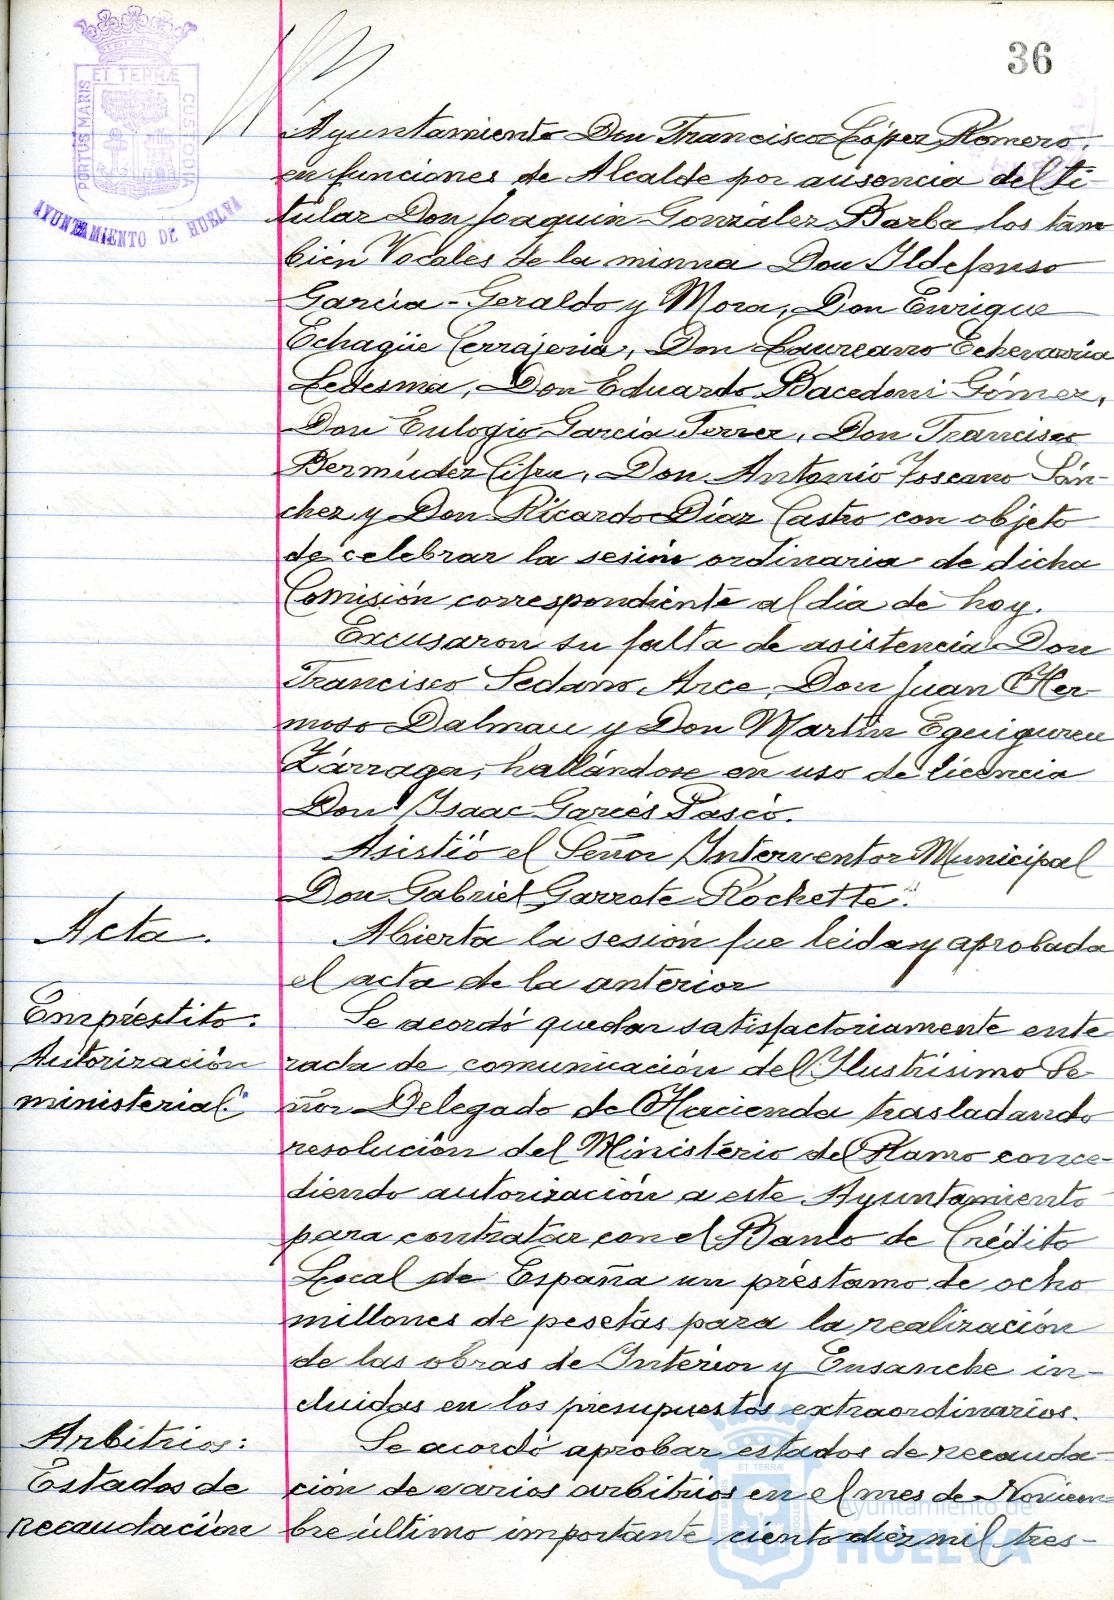 36
PORTUS MARIS ET TERRÆ CUSTODIA
AYUNTAMIENTO DE HUELVA
Ayuntamiento Don Francisco López Romero,
en funciones de Alcalde por ausencia del ti-
tular Don Joaquin González Barba los tam
bién Vocales de la misma Don Ildefonso
García-Geraldo y Mora, Don Enrique
Echagüe Cerrajeria, Don Laureano Echevarria
Ledesma, Don Eduardo Bacedoni Gómez,
Don Eulogio Garcia Ferrer, Don Francisco
Bermúdez Cifru, Don Antonio Toscano Sán-
chez y Don Ricardo Díaz Castro con objeto
de celebrar la sesión ordinaria de dicha
Comisión correspondiente al dia de hoy.
Excusaron su falta de asistencia Don
Francisco Sedano Arce, Don Juan Her-
moso Dalmau y Don Martin Eguiguren
Zárraga, hallándose en uso de licencia
Don Isaac Garcés Pascó.
Asistió el Señor Interventor Municipal
Don Gabriel Garrote Rochette.
Acta.
Abierta la sesión fue leida y aprobada
el acta de la anterior
Empréstito.
Autorización
ministerial.
Se acordó quedar satisfactoriamente ente
rada de comunicación del Ilustrísimo Se-
ñor Delegado de Hacienda trasladando
resolución del Ministerio del Ramo conce-
diendo autorización a este Ayuntamiento
para contratar con el Banco de Crédito
Local de España un préstamo de ocho
millones de pesetas para la realización
de las obras de Interior y Ensanche in-
cluidas en los presupuestos extraordinarios.
Arbitrios:
Estados de
recaudación
Se acordó aprobar estados de recauda-
ción de varios arbitrios en el mes de Noviem-
bre último importante ciento diez mil tres-
Ayuntamiento de
HUELVA